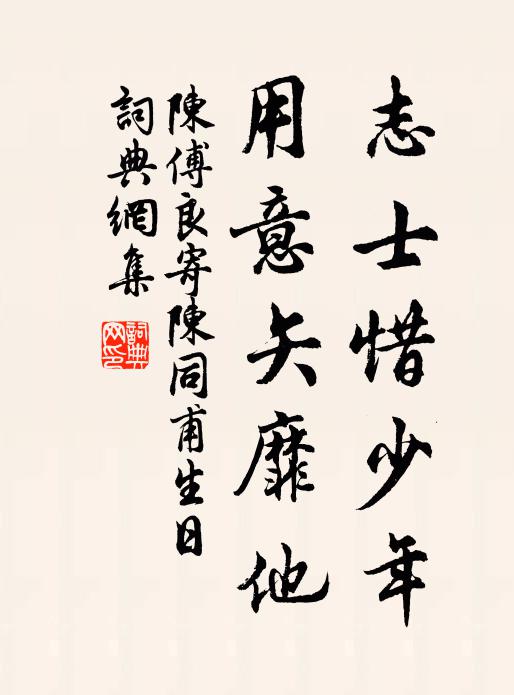 志士惜少年
用意矢靡他
陳傅良寄陳同甫生日
詞典網集
詞典
网印